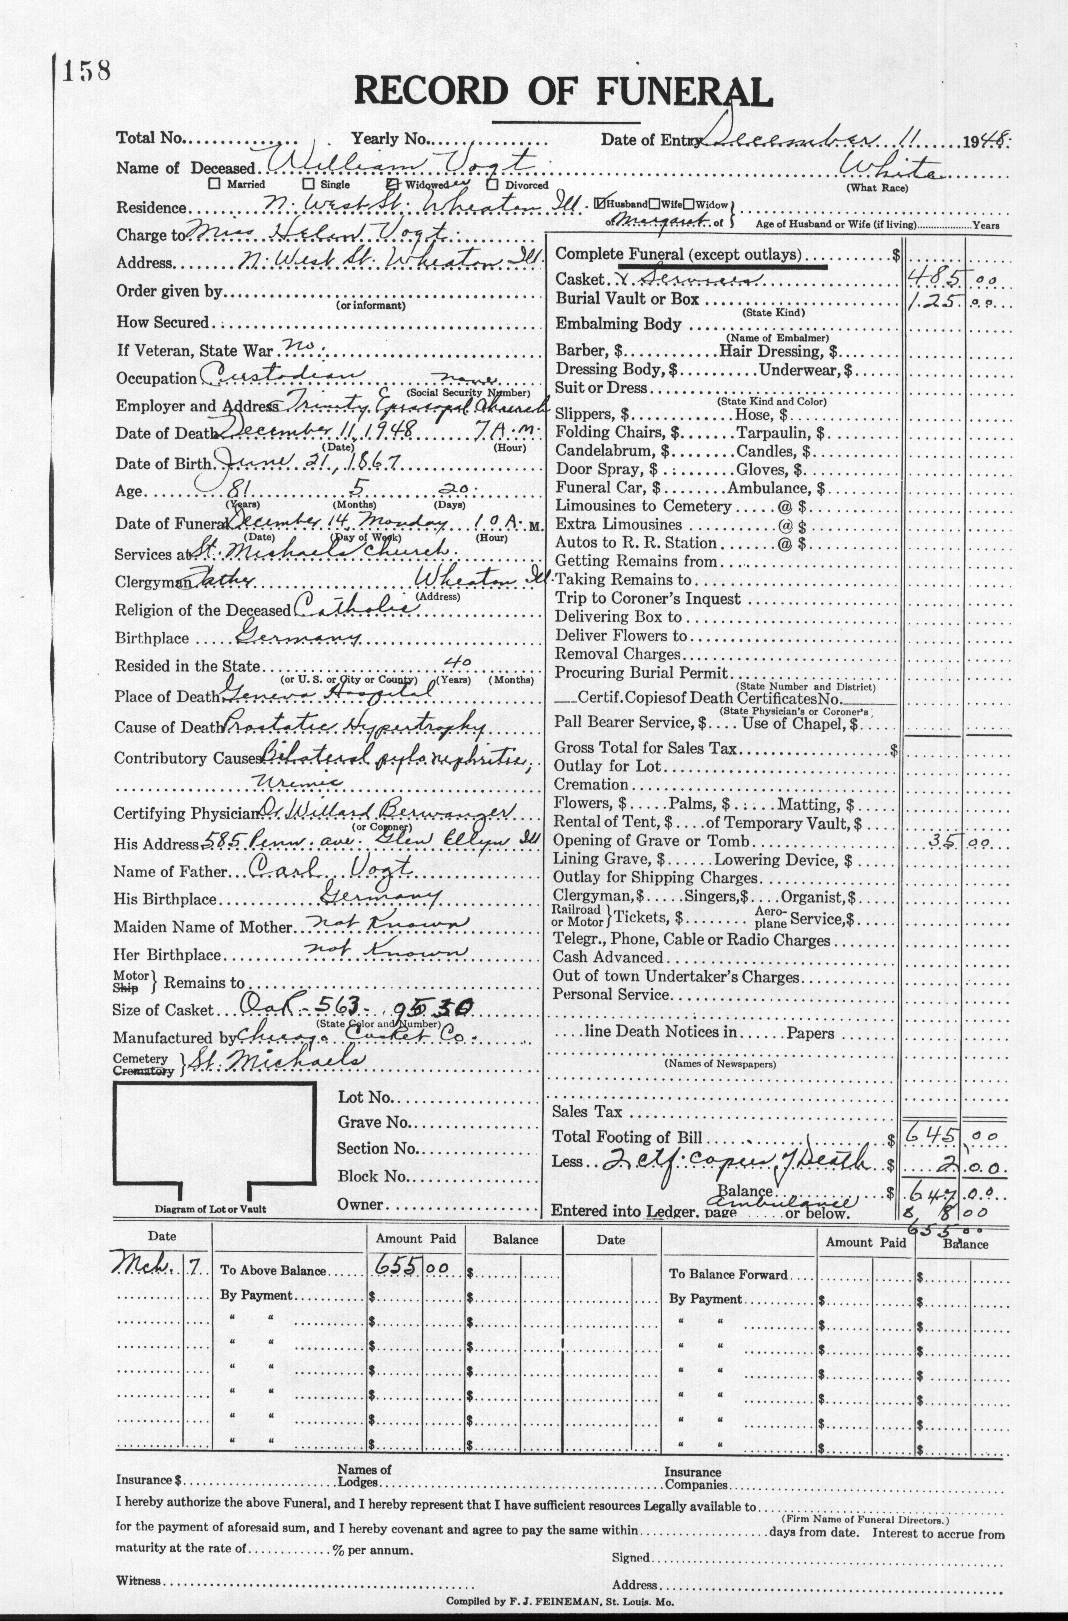 158
RECORD OF FUNERAL
Total No. Yearly No. Date of Entry December 11 1948.
Name of Deceased William Vogt. White
Married Single Widowed er Divorced (What Race)
Residence N. West St. Wheaton Ill. Husband Wife Widow
of Margaret of } Age of Husband or Wife (if living) Years
Charge to Miss Helen Vogt.
Address N. West St. Wheaton Ill.
Order given by
(or informant)
How Secured
If Veteran, State War no.
Occupation Custodian none
(Social Security Number)
Employer and Address Trinity Episcopal Church
Date of Death December 11, 1948 7 A.M.
(Date) (Hour)
Date of Birth June 21, 1867
Age 81 5 20
(Years) (Months) (Days)
Date of Funeral December 14 Monday 10 A.M.
(Date) (Day of Week) (Hour)
Services at St. Michaels Church.
Clergyman Father Wheaton Ill.
(Address)
Religion of the Deceased Catholic
Birthplace Germany
Resided in the State 40
(or U. S. or City or County) (Years) (Months)
Place of Death Geneva Hospital
Cause of Death Prostatic Hypertrophy
Contributory Causes Bilateral pylo nephritis;
Uremic
Certifying Physician Dr Willard Berwanger
(or Coroner)
His Address 585 Penn. ave. Glen Ellyn Ill
Name of Father Carl Vogt
His Birthplace Germany
Maiden Name of Mother not Known
Her Birthplace not Known
Motor
Ship } Remains to
Size of Casket Oak - 563 - 9530
(State Color and Number)
Manufactured by Chicago Casket Co.
Cemetery
Crematory } St. Michaels
Lot No.
Grave No.
Section No.
Block No.
Owner
Diagram of Lot or Vault
Complete Funeral (except outlays) $
Casket & Services 485 00
Burial Vault or Box 125 00
(State Kind)
Embalming Body
(Name of Embalmer)
Barber, $ Hair Dressing, $
Dressing Body, $ Underwear, $
Suit or Dress
(State Kind and Color)
Slippers, $ Hose, $
Folding Chairs, $ Tarpaulin, $
Candelabrum, $ Candles, $
Door Spray, $ Gloves, $
Funeral Car, $ Ambulance, $
Limousines to Cemetery @ $
Extra Limousines @ $
Autos to R. R. Station @ $
Getting Remains from
Taking Remains to
Trip to Coroner's Inquest
Delivering Box to
Deliver Flowers to
Removal Charges
Procuring Burial Permit
(State Number and District)
Certif. Copies of Death Certificates No.
(State Physician's or Coroner's)
Pall Bearer Service, $ Use of Chapel, $
Gross Total for Sales Tax $
Outlay for Lot
Cremation
Flowers, $ Palms, $ Matting, $
Rental of Tent, $ of Temporary Vault, $
Opening of Grave or Tomb 35 00
Lining Grave, $ Lowering Device, $
Outlay for Shipping Charges
Clergyman, $ Singers, $ Organist, $
Railroad or Motor } Tickets, $ Aero-plane Service, $
Telegr., Phone, Cable or Radio Charges
Cash Advanced
Out of town Undertaker's Charges
Personal Service
line Death Notices in Papers
(Names of Newspapers)
Sales Tax
Total Footing of Bill $ 645 00
Less 2 ctf. copies of Death $ 2 00
Balance $ 647 00
ambulance
Entered into Ledger, page or below. 8 8 00
655 00
Date Amount Paid Balance Date Amount Paid Balance
Mch. 7 To Above Balance 655 00 $ To Balance Forward $
By Payment $ $ By Payment $ $
" " $ $ " " $ $
" " $ $ " " $ $
" " $ $ " " $ $
" " $ $ " " $ $
" " $ $ " " $ $
" " $ $ " " $ $
Insurance $ Names of Lodges Insurance Companies
I hereby authorize the above Funeral, and I hereby represent that I have sufficient resources Legally available to
(Firm Name of Funeral Directors.)
for the payment of aforesaid sum, and I hereby covenant and agree to pay the same within days from date. Interest to accrue from
maturity at the rate of % per annum.
Signed
Witness Address
Compiled by F. J. FEINEMAN, St. Louis. Mo.